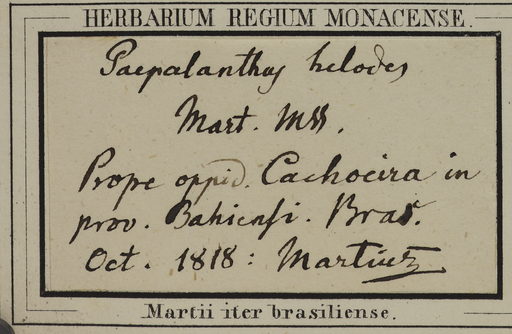 HERBARIUM REGIUM MONACENSE.
Paepalanthus helodes
Mart. Mss.
Prope oppid. Cachoeira in
prov. Bahiensi. Bras.
Oct. 1818: Martius
Martii iter brasiliense.